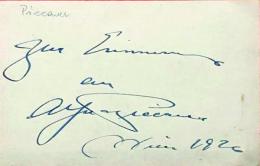 Piccaver
Zur Erinnerung
an
Alfred Piccaver
Wien 1926